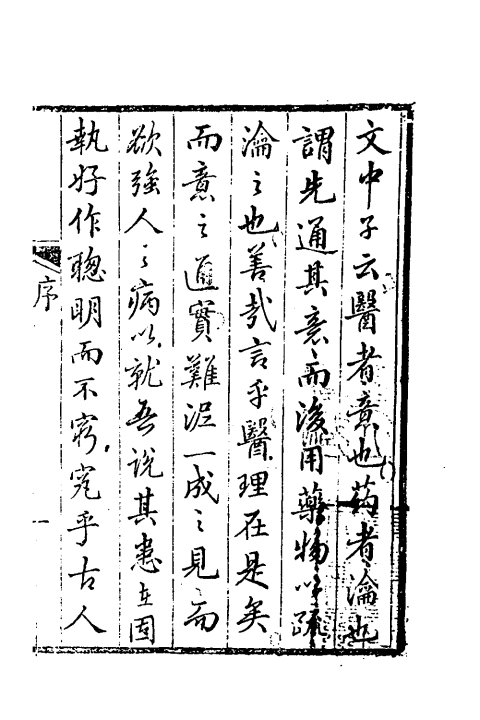 文中子云醫者意也葯者瀹也
謂先通其意而後用藥物以疏
瀹之也善哉言乎醫理在是矣
而意之通實難泥一成之見而
欲強人之病以就吾說其患在固
執好作聰明而不窮究乎古人
序
一